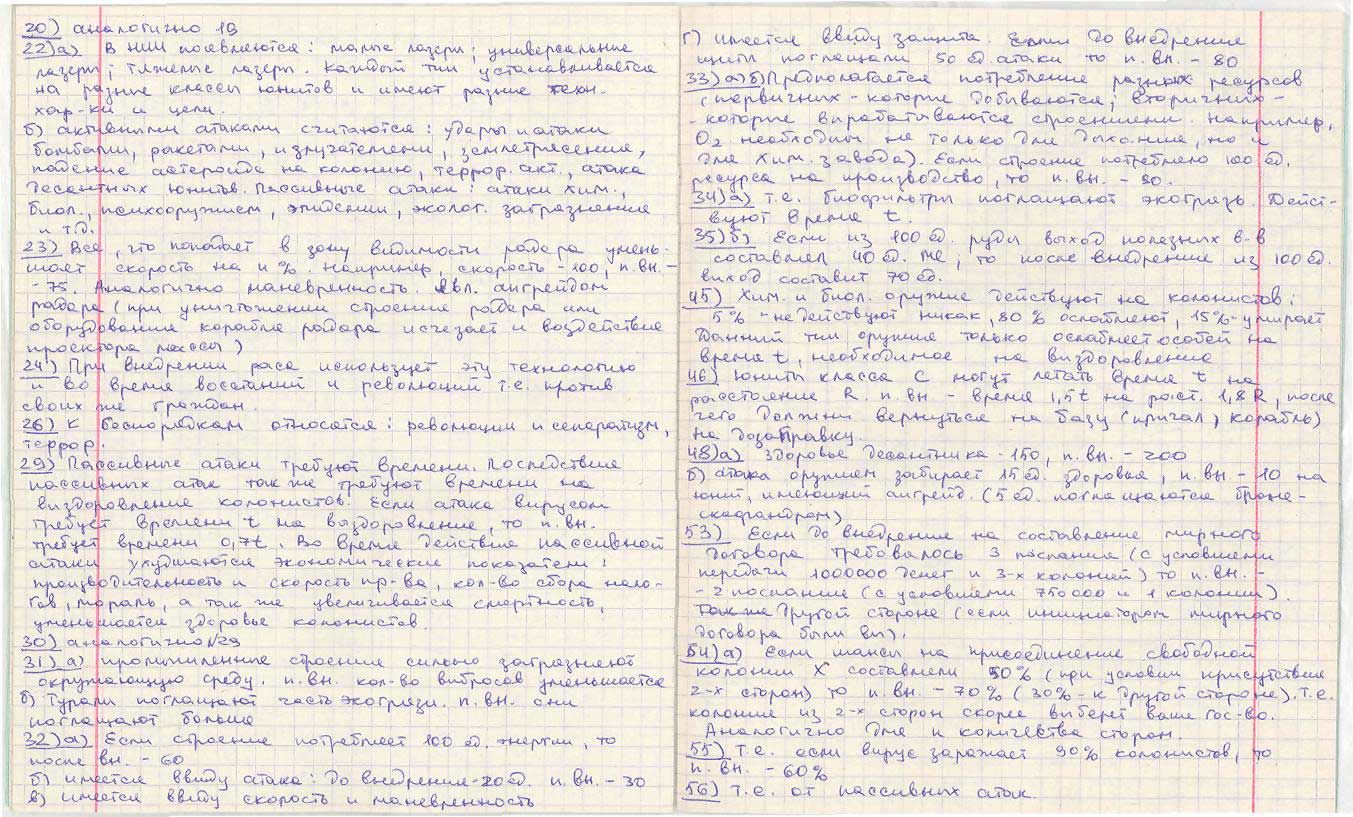 20) аналогично 19
22)а) В НИИ появляются: малые лазеры; универсальные
лазеры; тяжелые лазеры. Каждый тип устанавливается
на разные классы юнитов и имеют разные техн.
хар-ки и цели.
б) активными атаками считаются: удары и атаки
бомбами, ракетами, излучателями, землетрясение,
падение астероида на колонию, террор. акт., атака
десантных юнитов. Пассивные атаки: атаки хим.,
биол., психооружием, эпидемии, эколог. загрязнение
и т.д.
23) Все, что попадает в зону видимости радара умень-
шает скорость на n %. Например, скорость - 100, п.вн. -
- 75. Аналогично маневренность. Явл. апгрейдом
радара (при уничтожении строения радара или
оборудования корабля радара исчезает и воздействие
проектора массы)
24) При внедрении раса использует эту технологию
и во время восстаний и революций т.е. против
своих же граждан.
26) К беспорядкам относятся: революции и сепаратизм,
террор.
29) Пассивные атаки требуют времени. Последствие
пассивных атак так же требуют времени на
выздоровление колонистов. Если атака вирусом
требует времени t на выздоровление, то п.вн.
требует времени 0,7t. Во время действия пассивной
атаки ухудшаются экономические показатели:
производительность и скорость пр-ва, кол-во сбора нало-
гов, мораль, а так же увеличивается смертность,
уменьшается здоровье колонистов.
30) аналогично №29
31) а) промышленные строения сильно загрязняют
окружающую среду. п.вн. кол-во выбросов уменьшается
б) Турали поглощают часть экогрязи. п.вн. они
поглощают больше
32) а) Если строение потребляет 100 ед. энергии, то
после вн. - 60
б) имеется ввиду атака: до внедрения - 20 ед. п.вн. - 30
в) имеется ввиду скорость и маневренность
г) имеется ввиду защита. Если до внедрения
щиты поглощали 50 ед. атаки то п.вн. - 80
33) а) б) Предполагается потребление разных ресурсов
(первичных - которые добываются; вторичных -
- которые вырабатываются строениями. Например,
О2 необходим не только для дыхания, но и
для хим. завода). Если строение потребляло 100 ед.
ресурса на производство, то п.вн. - 90.
34) а) т.е. биофильтры поглощают экогрязь. Дейст-
вуют время t.
35) б) Если из 100 ед. руды выход полезных в-в
составлял 40 ед. Me, то после внедрения из 100 ед.
выход составит 70 ед.
45) Хим. и биол. оружие действуют на колонистов:
5% - не действуют никак, 80% ослабляют, 15% - умирает
Данный тип оружия только ослабляет особей на
время t, необходимое на выздоровление
46) Юниты класса С могут летать время t на
расстояние R. п.вн - время 1,5t на раст. 1,8R, после
чего должны вернуться на базу (причал, корабль)
на дозаправку.
48) а) здоровье десантника - 150, п.вн. - 200
б) атака оружием забирает 15 ед. здоровья, п.вн. - 10 на
юнит, имеющий апгрейд. (5 ед. поглощаются броне-
скафандром)
53) Если до внедрения на составление мирного
договора требовалось 3 послания (с условиями
передачи 1000000 денег и 3-х колоний) то п.вн. -
- 2 послания (с условиями 750000 и 1 колонии).
Так же другой стороне (если инициатором мирного
договора были вы).
54) а) Если шансы на присоединение свободной
колонии X составляли 50% (при условии присутствия
2-х сторон) то п.вн. - 70% (30% - к другой стороне). Т.е.
колония из 2-х сторон скорее выберет ваше гос-во.
Аналогично для n количества сторон.
55) Т.е. если вирус заражает 90% колонистов, то
п.вн. - 60%
56) Т.е. от пассивных атак.